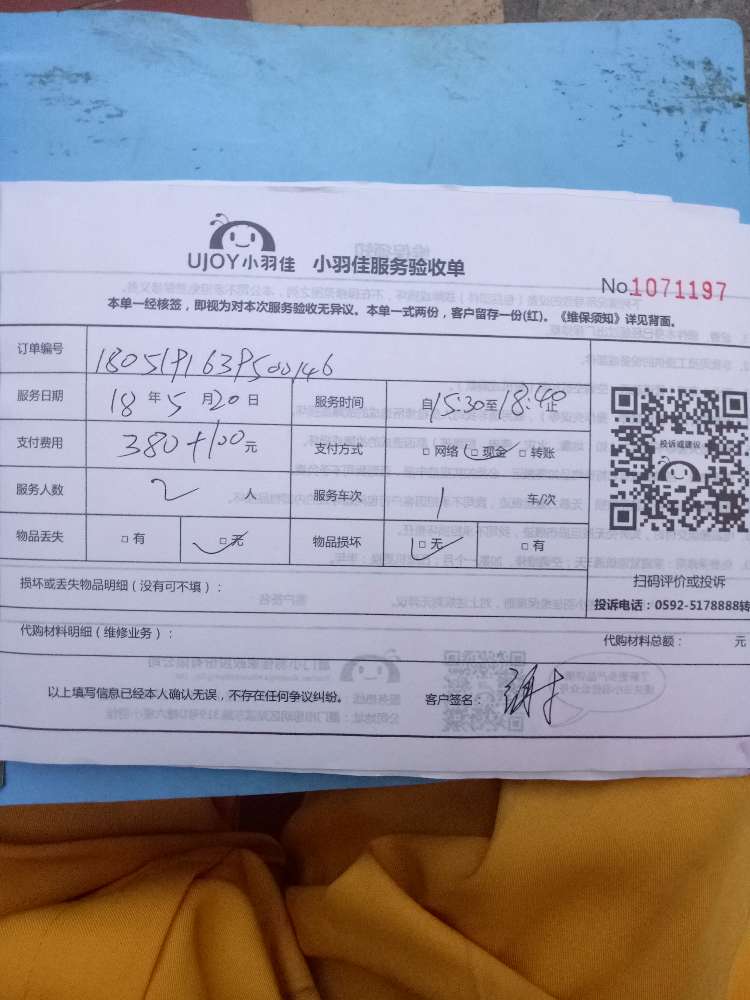 UJOY小羽佳 小羽佳服务验收单
No.1071197
本单一经核签，即视为对本次服务验收无异议。本单一式两份，客户留存一份(红)。《维保须知》详见背面。
订单编号
服务日期 18 年 5 月 20 日 服务时间 自 15:30 至 18:40 止
支付费用 380+100 元 支付方式 □网络 □现金 □转账
投诉或建议
服务人数 2 人 服务车次 1 车/次
物品丢失 □有 □无 物品损坏 □无 □有
扫码评价或投诉
损坏或丢失物品明细（没有可不填）：
投诉电话：0592-5178888转
代购材料明细（维修业务）：
代购材料总额： 元
以上填写信息已经本人确认无误，不存在任何争议纠纷。 客户签名：